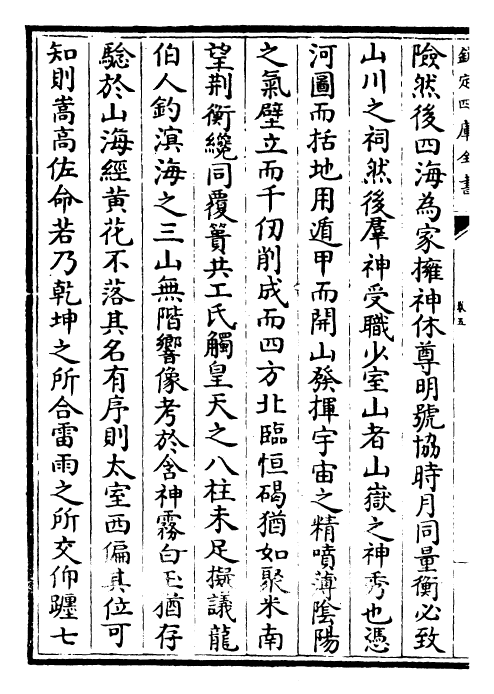 欽定四庫全書
卷五
險然後四海為家擁神休尊明號協時月同量衡必致
山川之祠然後羣神受職少室山者山嶽之神秀也憑
河圖而括地用遁甲而開山發揮宇宙之精噴薄陰陽
之氣壁立而千仞削成而四方北臨恒碣猶如聚米南
望荆衡纔同覆簣共工氏觸皇天之八柱未足擬議龍
伯人釣溟海之三山無階響像考於含神霧白玉猶存
驗於山海經黄花不落其名有序則太室西偏其位可
知則嵩高佐命若乃乾坤之所合雷雨之所交仰躔七